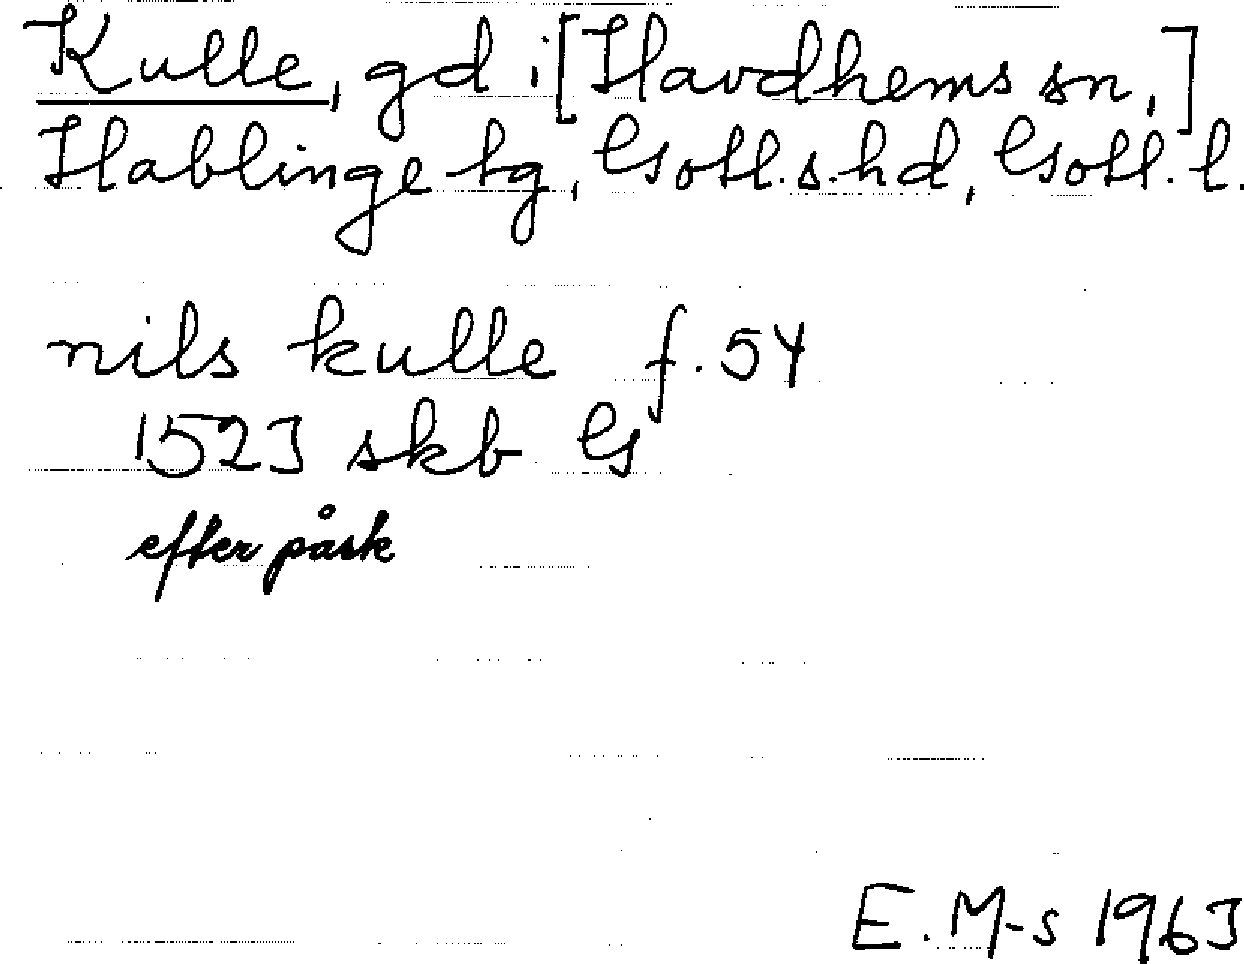 Kulle, gd i [Havdhems sn,]
Hablinge tg, Gotl. s. hd, Gotl. l.
nils kulle f. 54
1523 skb G
efter påsk
E. M-s 1963